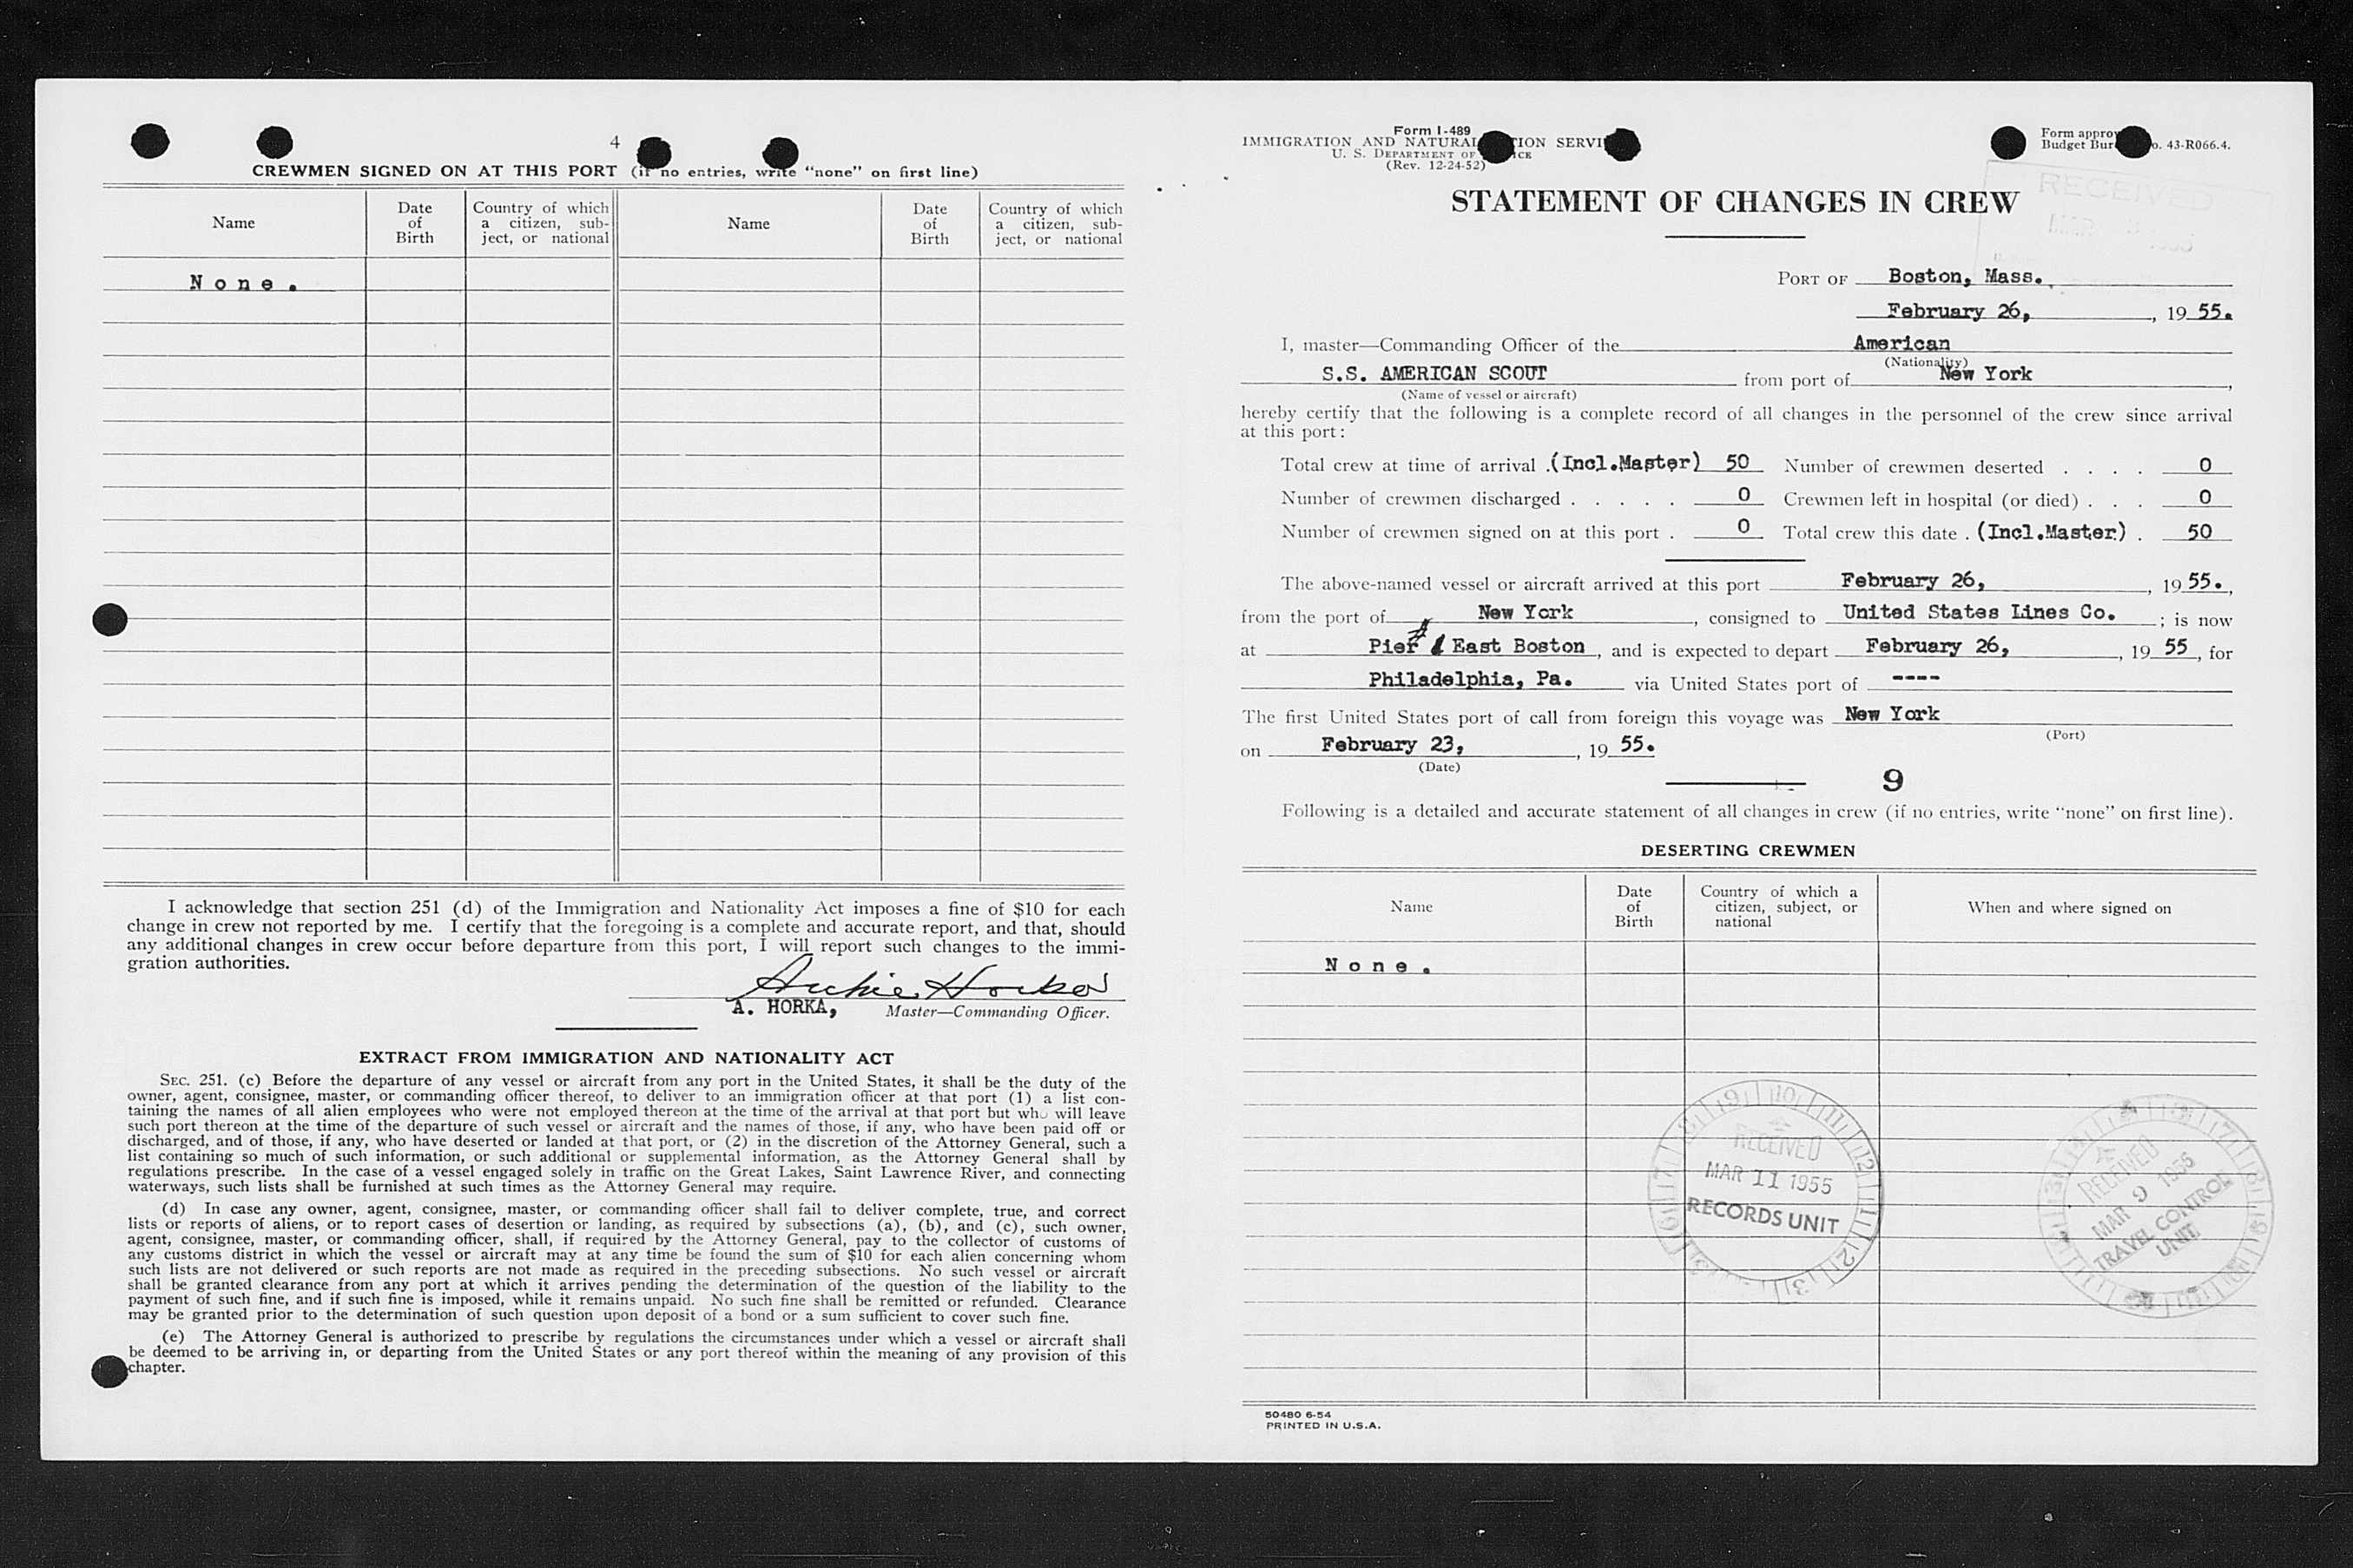 4
CREWMEN SIGNED ON AT THIS PORT (if no entries, write "none" on first line)
Name
Date of Birth
Country of which a citizen, sub-
ject, or national
Name
Date of Birth
Country of which a citizen, sub-
ject, or national
None.
I acknowledge that section 251 (d) of the Immigration and Nationality Act imposes a fine of $10 for each
change in crew not reported by me. I certify that the foregoing is a complete and accurate report, and that, should
any additional changes in crew occur before departure from this port, I will report such changes to the immi-
gration authorities.
Archie Horka
A. HORKA, Master—Commanding Officer.
EXTRACT FROM IMMIGRATION AND NATIONALITY ACT
SEC. 251. (c) Before the departure of any vessel or aircraft from any port in the United States, it shall be the duty of the
owner, agent, consignee, master, or commanding officer thereof, to deliver to an immigration officer at that port (1) a list con-
taining the names of all alien employees who were not employed thereon at the time of the arrival at that port but who will leave
such port thereon at the time of the departure of such vessel or aircraft and the names of those, if any, who have been paid off or
discharged, and of those, if any, who have deserted or landed at that port, or (2) in the discretion of the Attorney General, such a
list containing so much of such information, or such additional or supplemental information, as the Attorney General shall by
regulations prescribe. In the case of a vessel engaged solely in traffic on the Great Lakes, Saint Lawrence River, and connecting
waterways, such lists shall be furnished at such times as the Attorney General may require.
(d) In case any owner, agent, consignee, master, or commanding officer shall fail to deliver complete, true, and correct
lists or reports of aliens, or to report cases of desertion or landing, as required by subsections (a), (b), and (c), such owner,
agent, consignee, master, or commanding officer, shall, if required by the Attorney General, pay to the collector of customs of
any customs district in which the vessel or aircraft may at any time be found the sum of $10 for each alien concerning whom
such lists are not delivered or such reports are not made as required in the preceding subsections. No such vessel or aircraft
shall be granted clearance from any port at which it arrives pending the determination of the question of the liability to the
payment of such fine, and if such fine is imposed, while it remains unpaid. No such fine shall be remitted or refunded. Clearance
may be granted prior to the determination of such question upon deposit of a bond or a sum sufficient to cover such fine.
(e) The Attorney General is authorized to prescribe by regulations the circumstances under which a vessel or aircraft shall
be deemed to be arriving in, or departing from the United States or any port thereof within the meaning of any provision of this
chapter.
Form I-489
IMMIGRATION AND
U. S. DEPARTMENT OF
(Rev. 12-24-52)
Form
Budget 43-R066.4.
RECEIVED
STATEMENT OF CHANGES IN CREW
PORT OF Boston, Mass.
February 26, , 19 55.
I, master—Commanding Officer of the American
(Nationality)
S.S. AMERICAN SCOUT from port of New York ,
(Name of vessel or aircraft)
hereby certify that the following is a complete record of all changes in the personnel of the crew since arrival
at this port:
Total crew at time of arrival .(Incl.Master) 50 Number of crewmen deserted . . . . 0
Number of crewmen discharged . . . . . 0 Crewmen left in hospital (or died) . . . 0
Number of crewmen signed on at this port . 0 Total crew this date . (Incl.Master) . 50
The above-named vessel or aircraft arrived at this port February 26, , 19 55. ,
from the port of New York , consigned to United States Lines Co. ; is now
at Pier # 1 East Boston , and is expected to depart February 26, , 19 55 , for
Philadelphia, Pa. via United States port of ----
The first United States port of call from foreign this voyage was New York
(Port)
on February 23, , 19 55.
(Date)
9
Following is a detailed and accurate statement of all changes in crew (if no entries, write "none" on first line).
DESERTING CREWMEN
Name
Date of Birth
Country of which a citizen, subject, or national
When and where signed on
None.
RECEIVED
MAR 11 1955
RECORDS UNIT
RECEIVED
MAR 9 1955
TRAVEL CONTROL
UNIT
50480 6-54
PRINTED IN U.S.A.